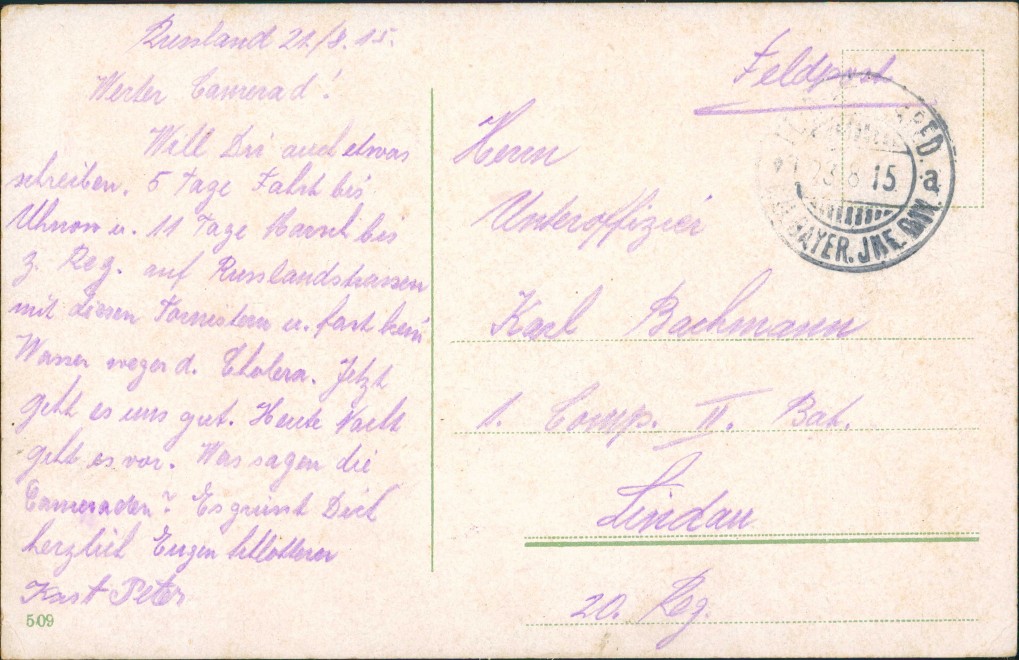 Russland 21/8.15.
Werter Camerad!
Will Dir auch etwas
schreiben. 5 Tage Fahrt bis
Uhnow u. 11 Tage Marsch bis
z. Reg. auf Russlandstrassen
mit diesen Tornistern u. fast kein
Wasser wegen d. Cholera. Jetzt
geht es uns gut. Heute Nacht
geht es vor. Was sagen die
Cameraden? Es grüsst Dich
herzlich Eugen
Kast Peter
509
Feldpost
Herrn
Unteroffizier
Karl Bachmann
1. Comp. II. Bat.
Lindau
20. Reg.
PED. a
23 8 15
BAYER. INF. DIV.